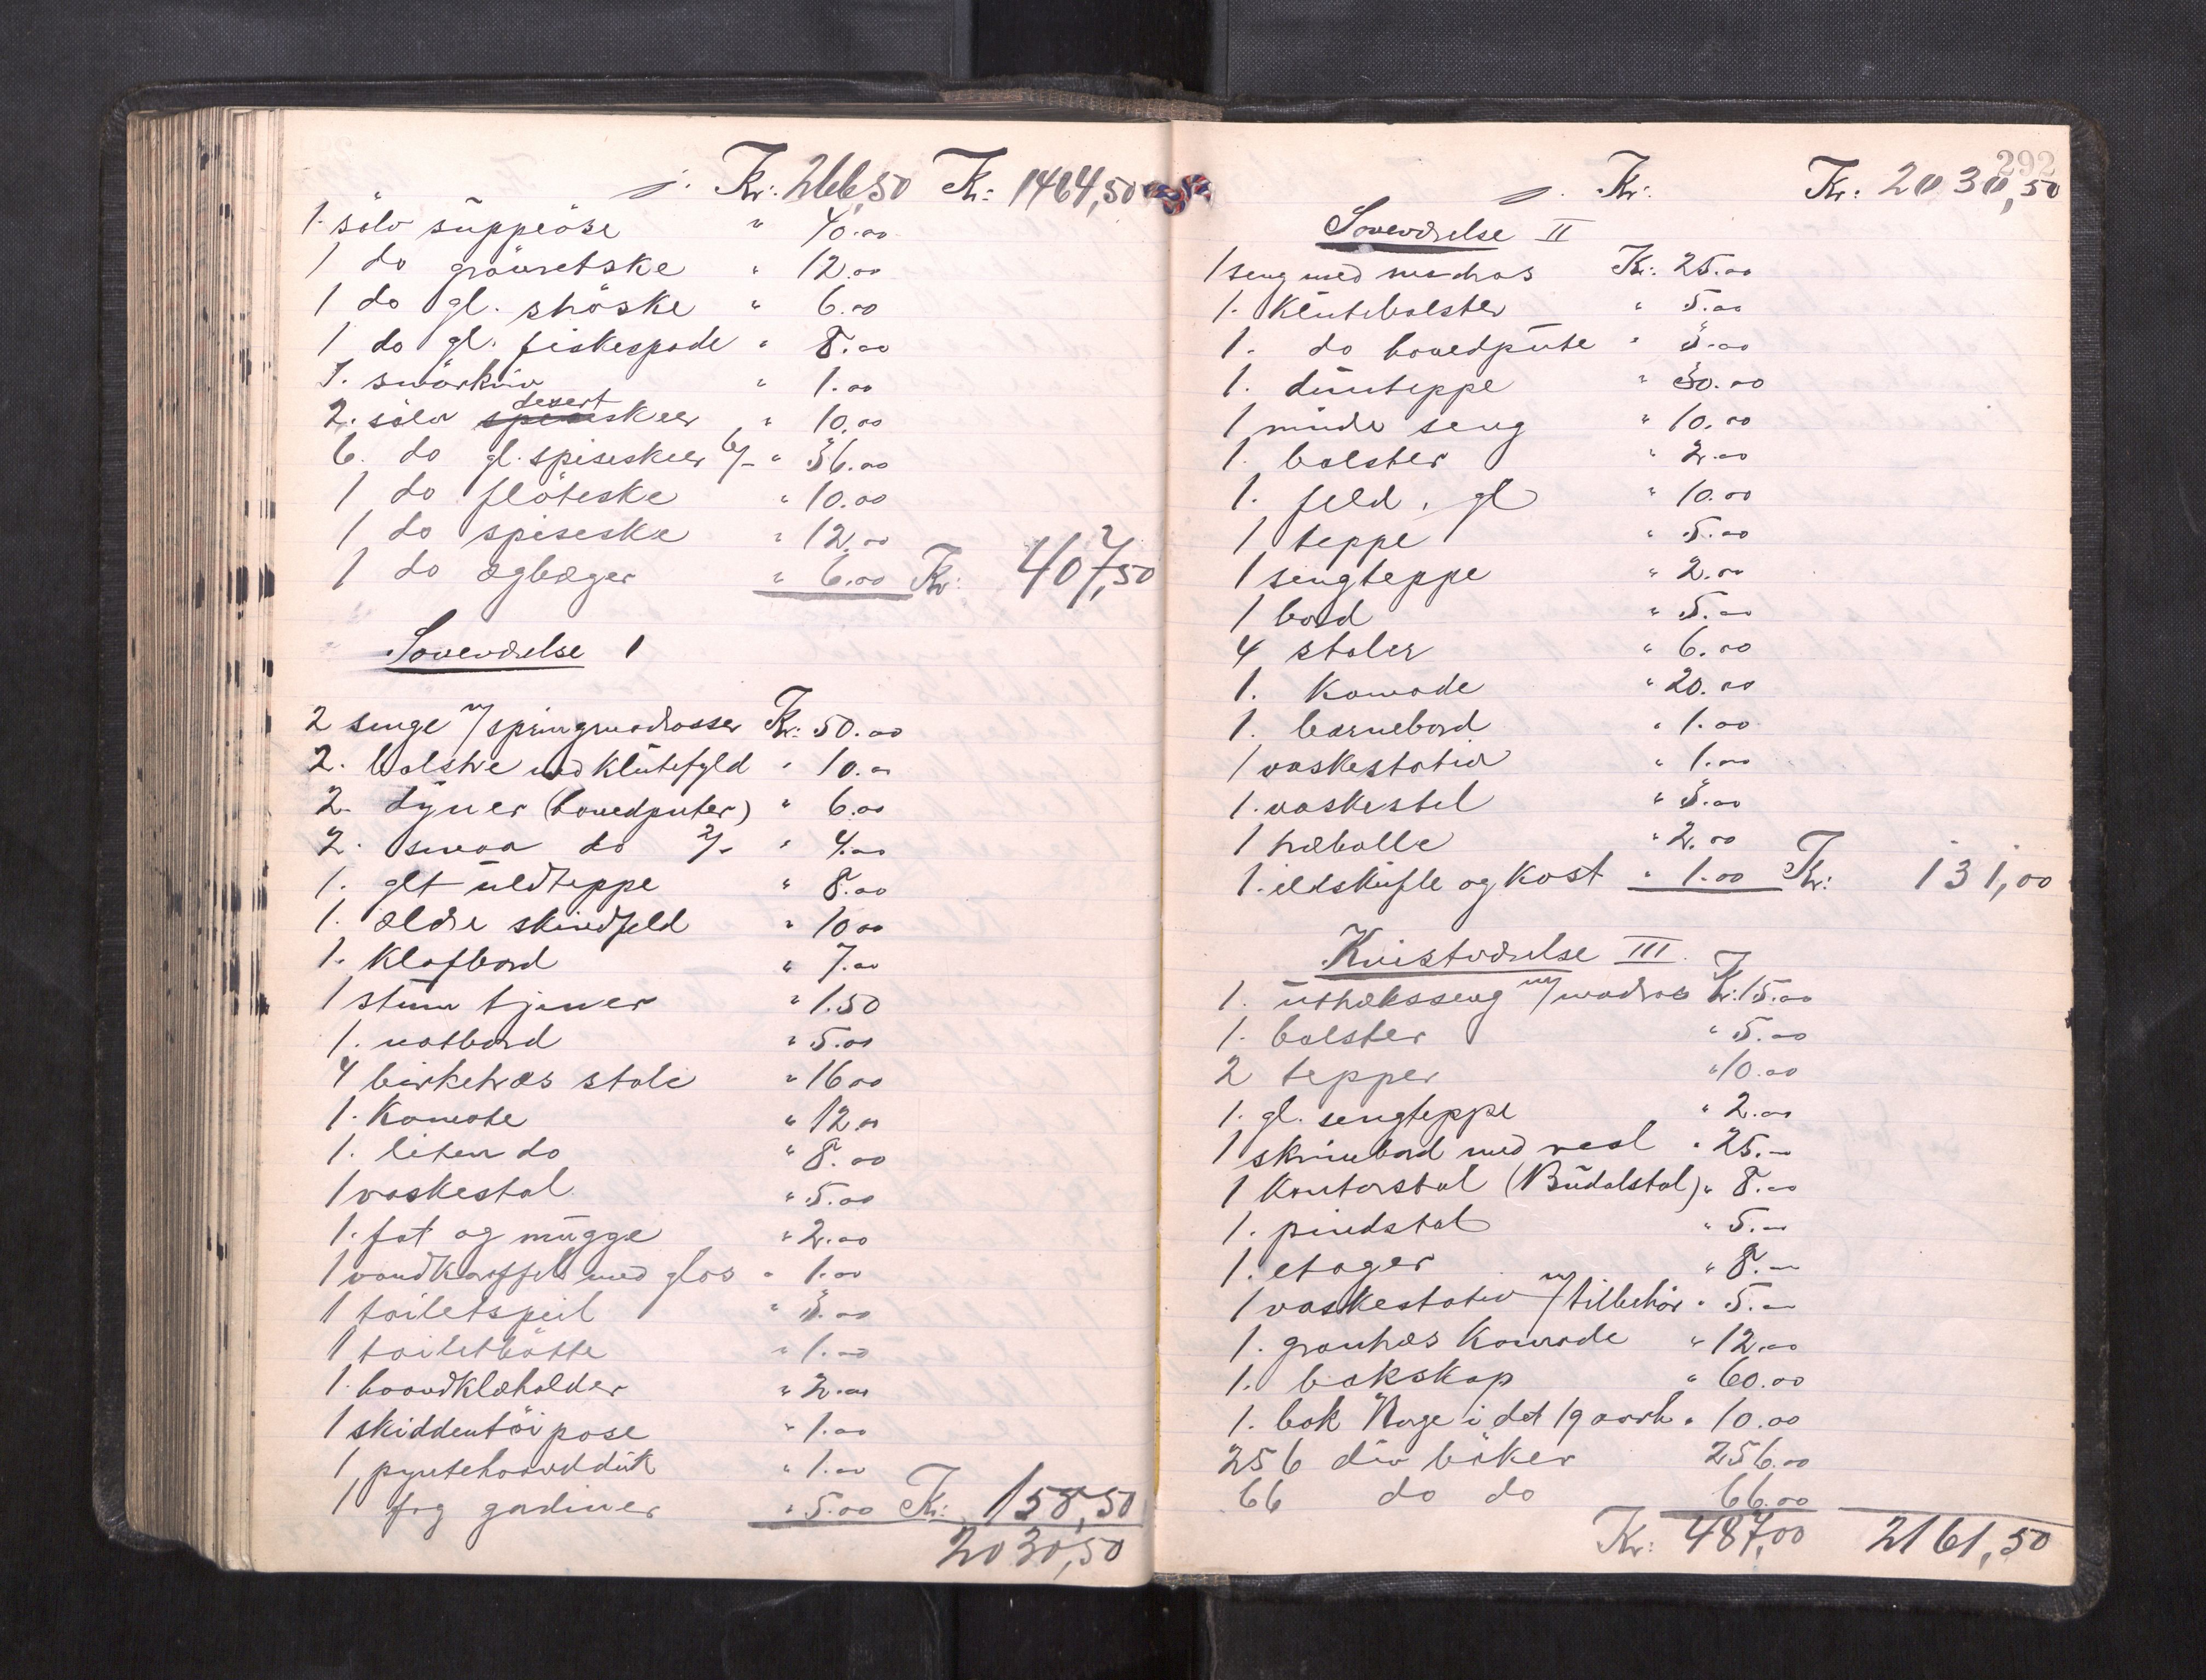 Kr: 266,50 Kr: 1464,50
1. sölv süppeöse " 40.00
1 do gröuretske " 12.00
1 do gl. shöske " 6.00
1 do gl. fiskespade " 8.00
1. smörkniv " 1.00
2. sölv dessertskeer " 10.00
6. do gl. spiseskeer 6/- " 36.00
1 do flöteske " 10.00
1 do spiseske " 12.00
1 do ægbæger " 6.00 Kr: 407,50
Soveværelse 1
2 senge m/springmadrasser Kr: 50.00
2. bolstre med klütefyld " 10.00
2. dyner (hovedputer) " 6.00
2. smaa do 2/- " 4.00
1. glt üldteppe " 8.00
1. ældre skindfeld " 10 00
1. Klafbord " 7.00
1 stum tjener " 1.50
1. natbord " 5.00
4 birketræs stole " 16 00
1. Komode " 12.00
1. liten do " 8.00
1 vaskestol " 5.00
1. fat og mügge " 2.00
1 vandkaraffel med glas " 1.00
1 toiletspeil " 3.00
1 toiletbötte " 1.00
1. haandklæholder " 2.00
1 skiddentöipose " 1.00
1 pyntehaandduk " 1.00
1 fag gardiner " 5.00 Kr: 158,50
2030,50
292
Kr: Kr: 2030,50
Soveværelse II
1 seng med madras Kr: 25.00
1. Klütebolster " 5.00
1. do hovedpüte " 3.00
1. dünteppe " 30.00
1 mindre seng " 10.00
1. bolster " 2.00
1. feld, gl " 10.00
1 teppe " 5.00
1 sengteppe " 2.00
1 bord " 5.00
4 stoler " 6.00
1. Komode " 20.00
1. barnebord " 1.00
1 vaskestativ " 1.00
1. vaskestel " 3.00
1 træbalje " 2.00
1. ildskuffe og kost " 1.00 Kr: 131,00
Kvistværelse III.
1. uttræksseng m/madras Kr: 15.00
1. bolster " 5.00
2 tepper " 10.00
1. gl. sengteppe " 2.00
1 skrivebord med reol " 25.-
1 Kontorstol (Büdalstol) " 8.00
1. pindstol " 5.-
1. etager " 8.-
1 vaskestativ m/tilbehör " 5.-
1. grantræs Komode " 12.00
1. bokskap " 60.00
1. bok Norge i det 19 aarh. " 10.00
256 div böker 256.00
66 do do 66.00
Kr: 487,00 2161,50